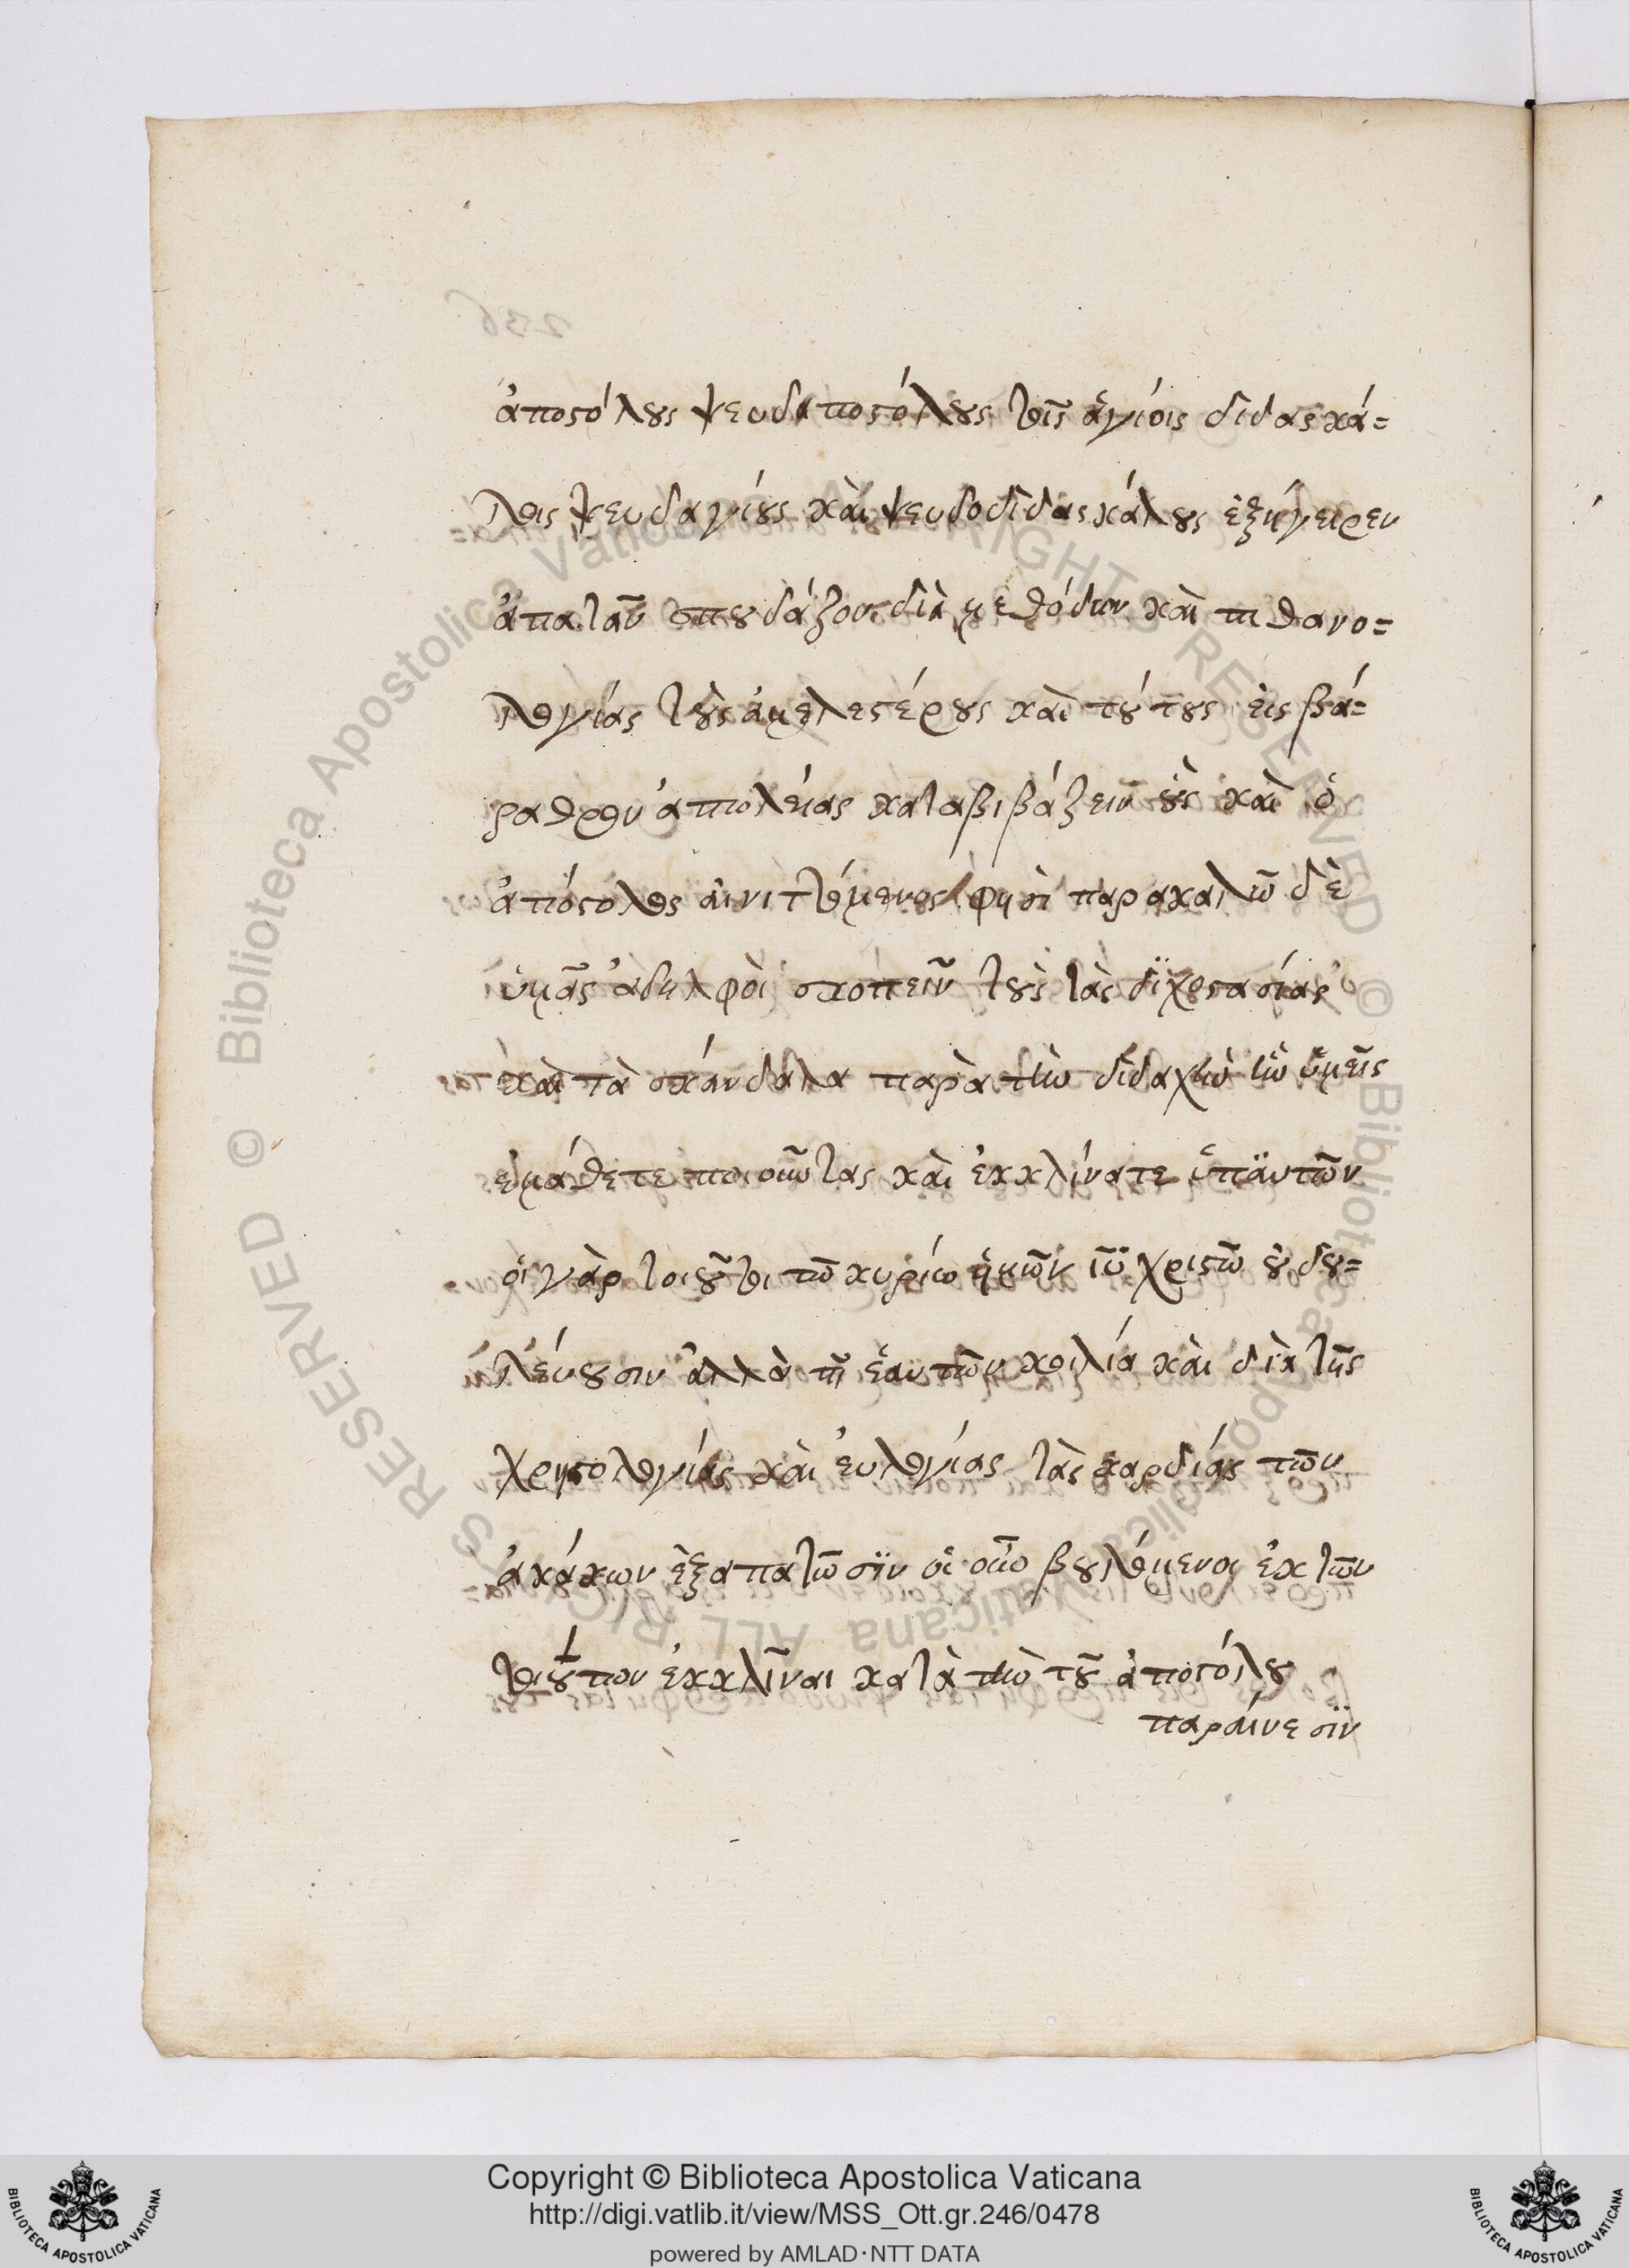 ἀποστόλους ψευδαποστόλους τοῖς ἁγίοις διδασκά=
λοις ψευδαγίους καὶ ψευδοδιδασκάλους ἐξήγειρεν
ἀπατᾶν σπουδάζουσι διὰ μεθόδων καὶ πιθανο=
λογίας τοὺς ἀμελεστέρους καὶ τούτους εἰς βά=
ραθρον ἀπωλείας καταβιβάζειν οὓς καὶ ὁ
ἀπόστολος αἰνιττόμενος φησὶ παρακαλῶ δὲ
ὑμᾶς ἀδελφοὶ σκοπεῖν τοὺς τὰς διχοστασίας
καὶ τὰ σκάνδαλα παρὰ τὴν διδαχὴν ἣν ὑμεῖς
ἐμάθετε ποιοῦντας καὶ ἐκκλίνατε ὑπ' αὐτῶν
οἱ γὰρ τοιοῦτοι τῷ κυρίῳ ἡμῶν ἰῦ χριστῷ οὐ δου=
λεύουσιν ἀλλὰ τῇ ἑαυτῶν κοιλίᾳ καὶ διὰ τῆς
χρηστολογίας καὶ εὐλογίας τὰς καρδίας τῶν
ἀκάκων ἐξαπατῶσϊν οἱ οὖν βουλόμενοι ἐκ τῶν
τοιούτων ἐκκλῖναι κατὰ τὴν τοῦ ἀποστόλου
παραίνεσϊν
236
Biblioteca Apostolica Vaticana ALL RIGHTS RESERVED ©
Biblioteca Apostolica Vaticana ALL RIGHTS RESERVED ©
Copyright © Biblioteca Apostolica Vaticana
http://digi.vatlib.it/view/MSS_Ott.gr.246/0478
powered by AMLAD·NTT DATA
BIBLIOTECA APOSTOLICA VATICANA
BIBLIOTECA APOSTOLICA VATICANA